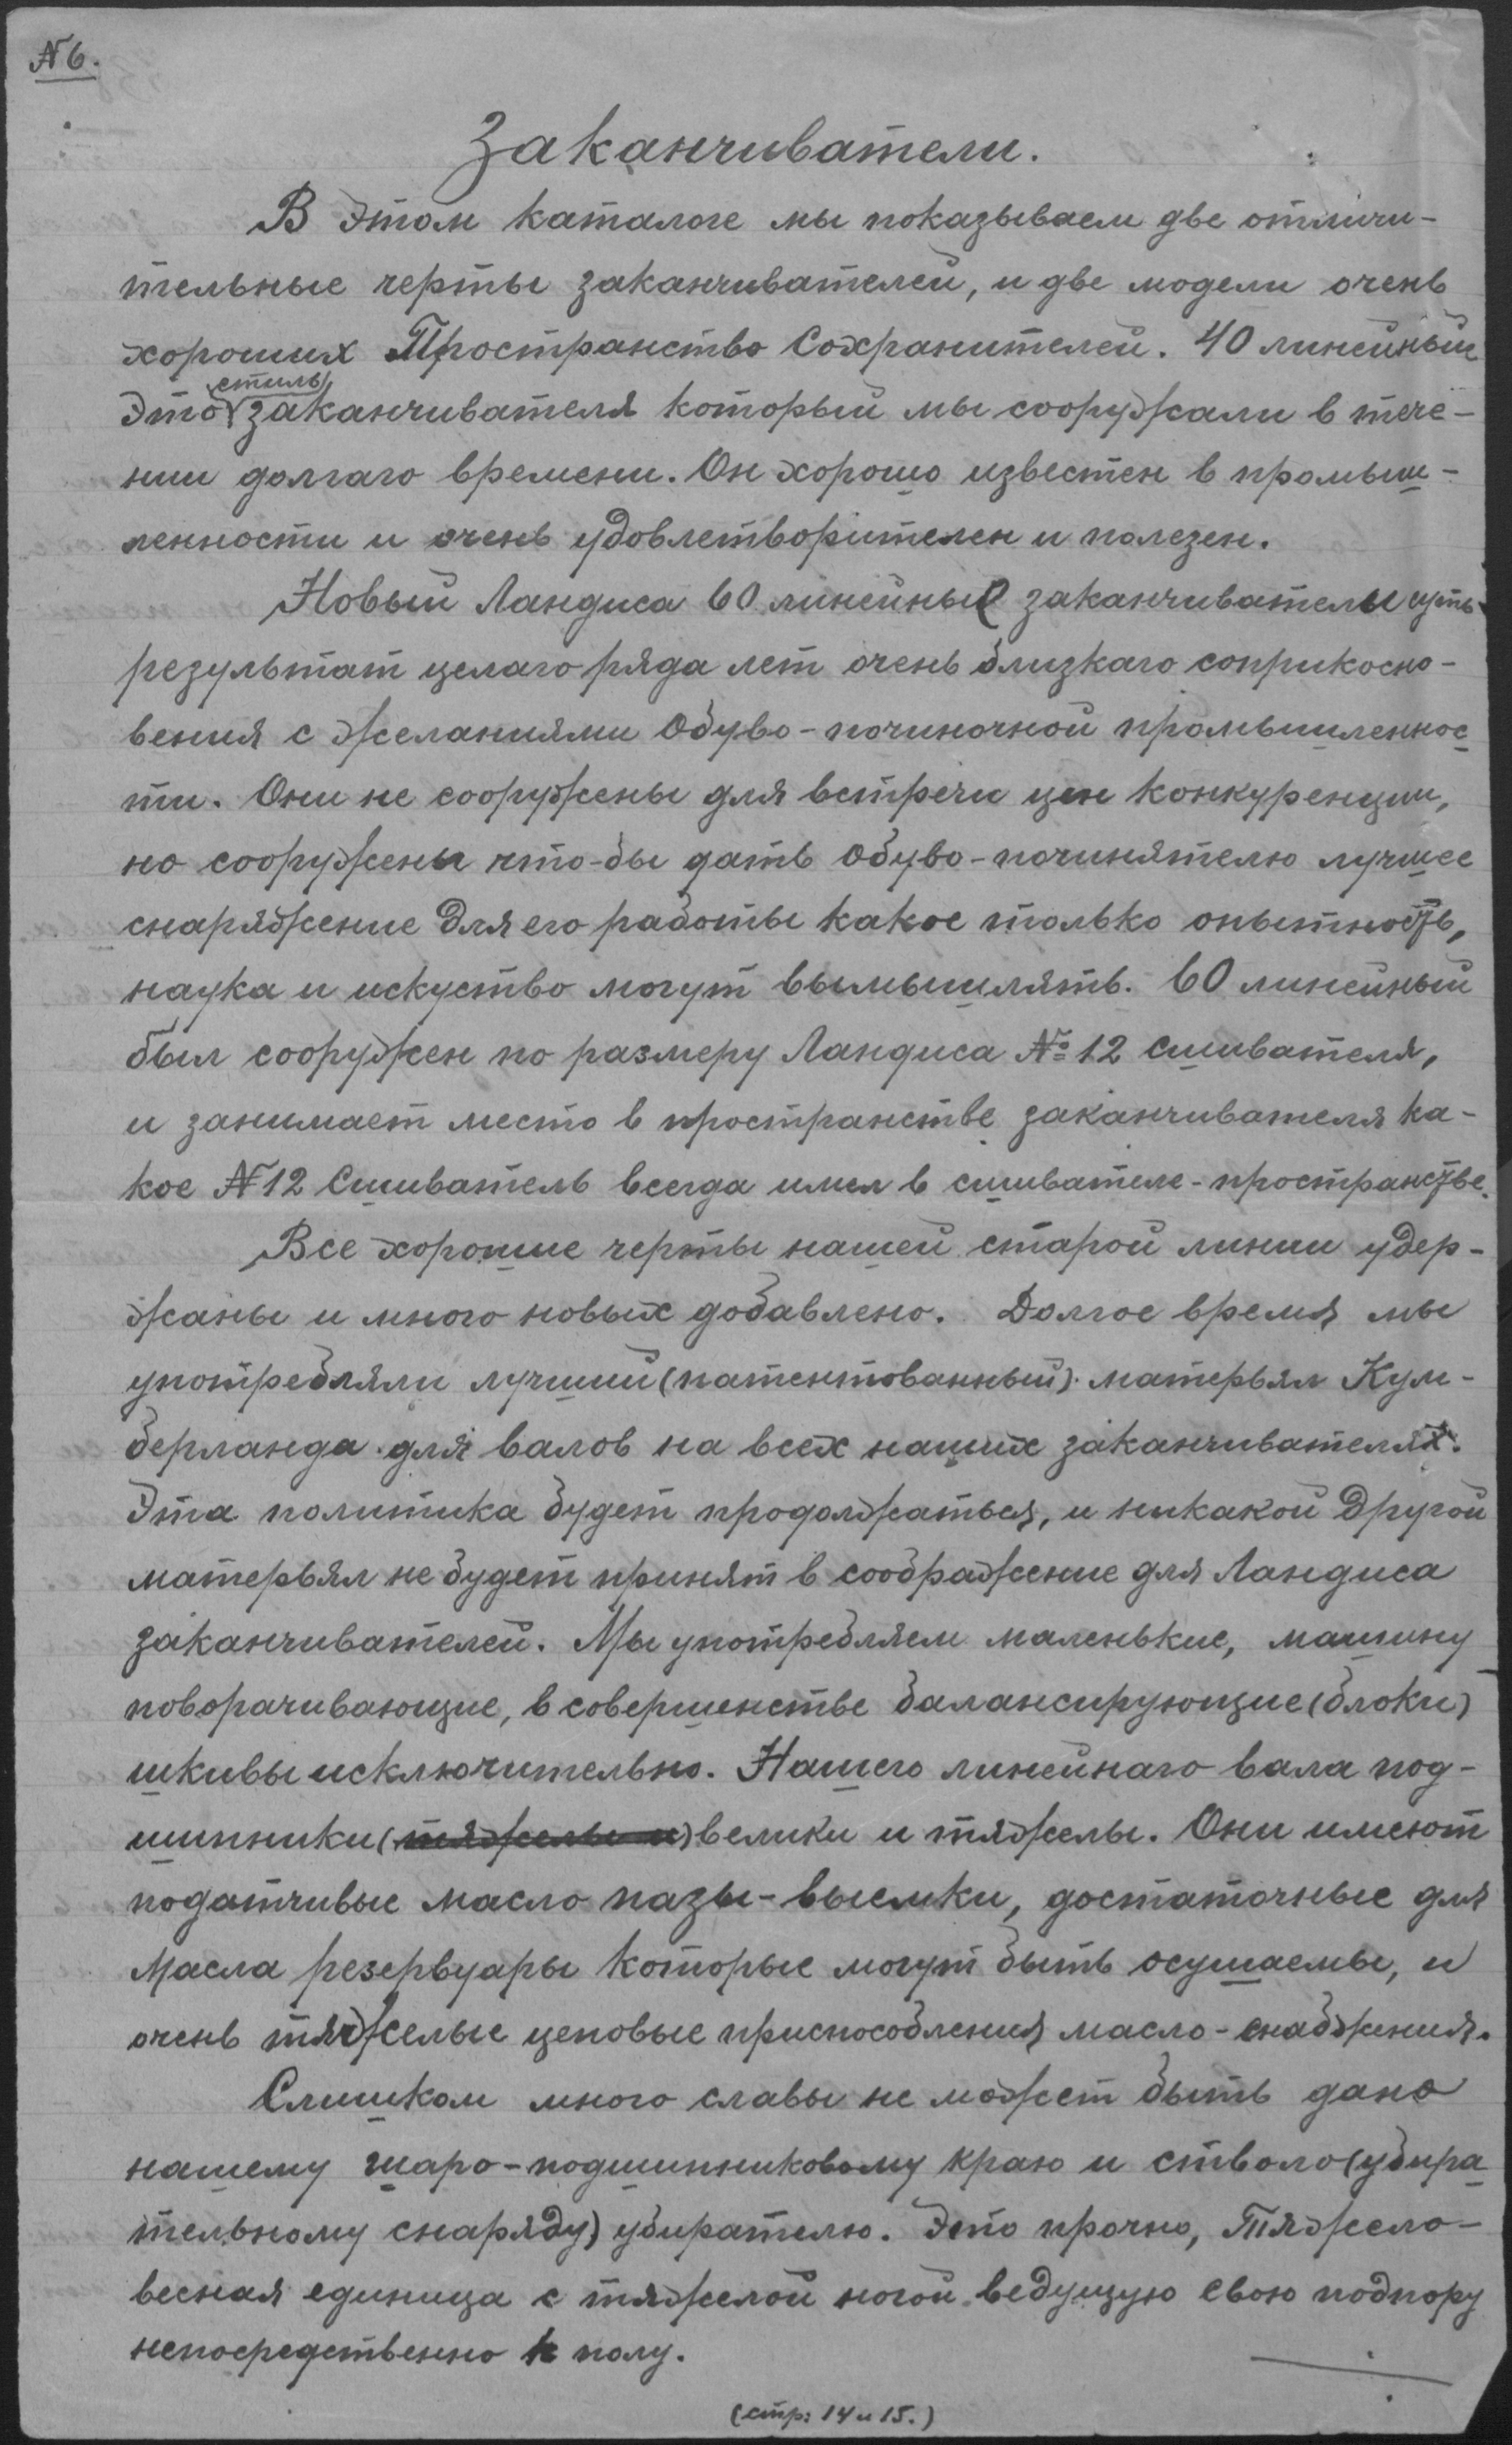 №6.
Заканчиватели.
В этом каталоге мы показываем две отличи-
тельные черты заканчивателей, и две модели очень
хороших Пространство Сохранителей. 40 линейный
стиль
Это заканчивателя который мы сооружали в тече-
нии долгаго времени. Он хорошо известен в промыш-
ленности и очень удовлетворителен и полезен.
Новый Ландиса 60 линейные заканчиватели суть
результат целаго ряда лет очень близкаго соприкосно-
вения с желаниями обуво-починочной промышленнос
ти. Они не сооружены для встречи цен конкуренции,
но сооружены что-бы дать обуво-починятелю лучшее
снаряжение для его работы какое только опытность,
наука и искуство могут вымышлять. 60 линейный
был сооружен по размеру Ландиса №12 сшивателя,
и занимает место в пространстве заканчивателя ка-
кое №12 Сшиватель всегда имел в сшивателе-пространстве.
Все хорошие черты нашей старой линии удер-
жаны и много новых добавлено. Долгое время мы
употребляли лучший (патентованный) матерьял Кум-
берланда для валов на всех наших заканчивателях.
Эта политика будет продолжаться, и никакой другой
матерьял не будет принят в соображение для Ландиса
заканчивателей. Мы употребляем маленькие, машину
поворачивающие, в совершенстве балансирующие (блоки)
шкивы исключительно. Нашего линейнаго вала под-
шипники (тяжелы и) велики и тяжелы. Они имеют
податчивые масло пазы-выемки, достаточные для
масла резервуары которые могут быть осушаемы, и
очень тяжелые цеповые приспособления масло-снабжения.
Слишком много славы не может быть дано
нашему шаро-подшипниковому краю и стволо (убира
тельному снаряду) убирателю. Это прочно, тяжело-
весная единица с тяжелой ногой ведущую свою подпору
непосредственно к полу.
(стр: 14 и 15.)